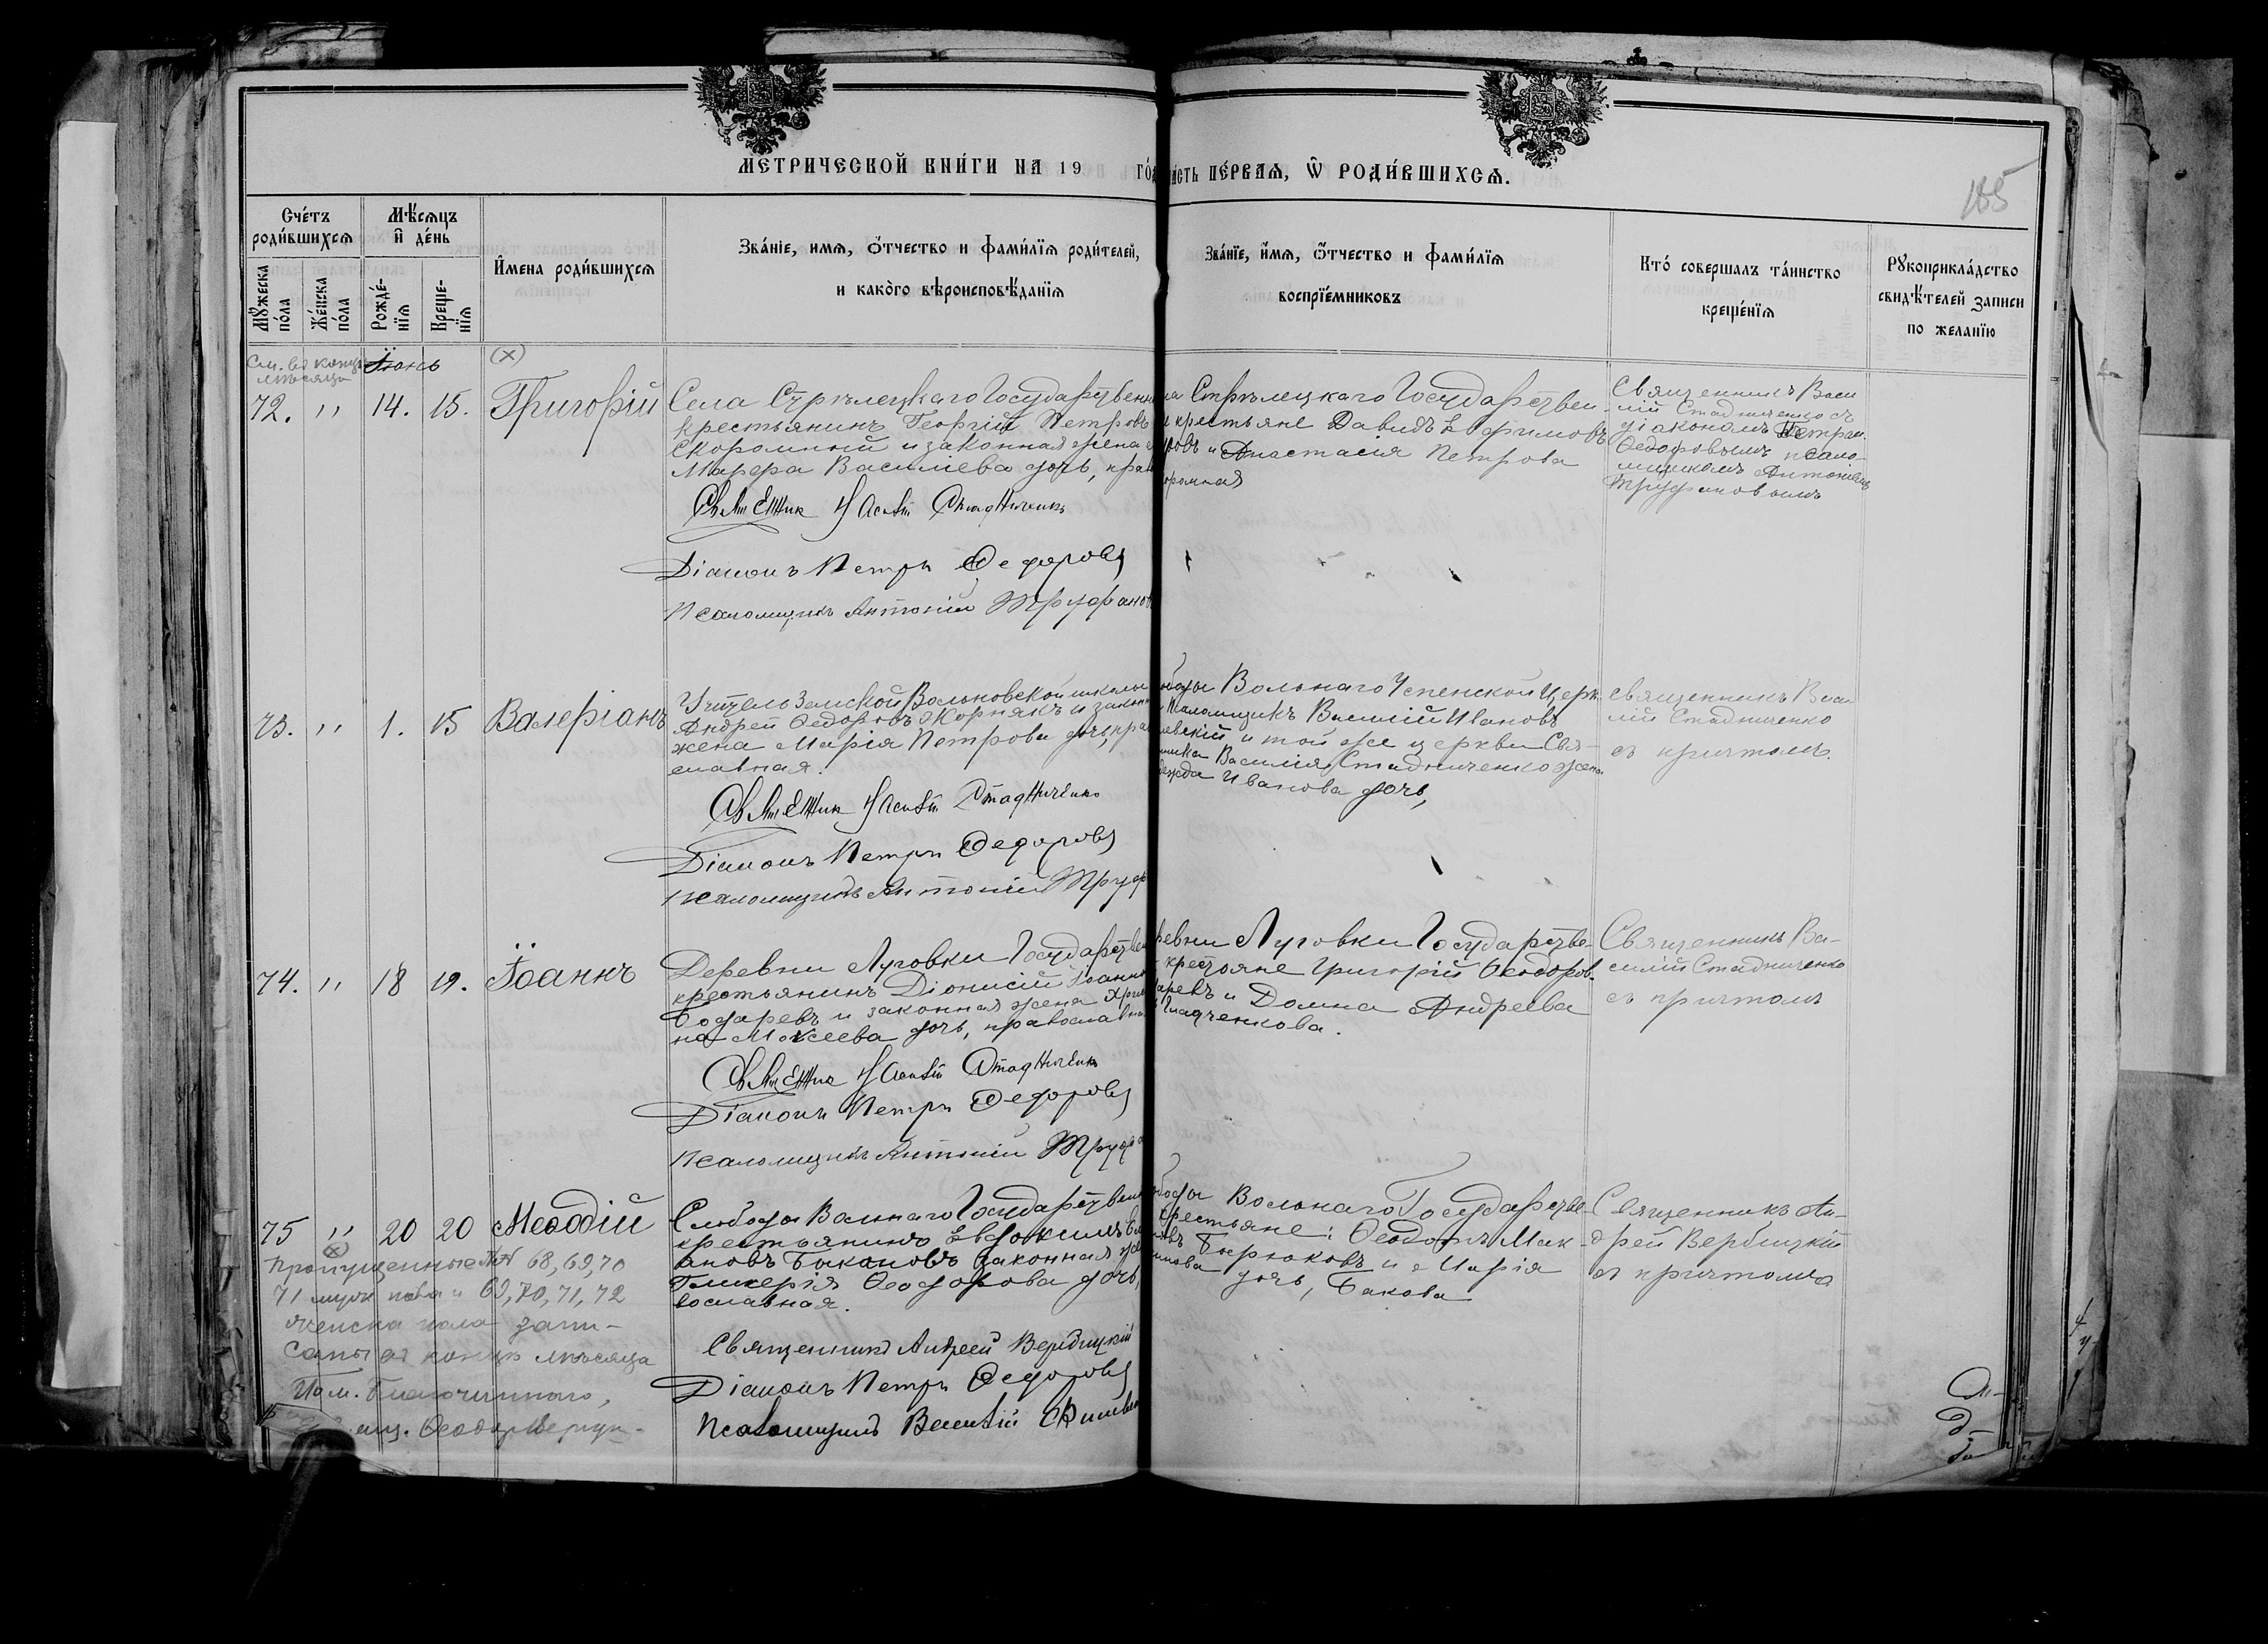 МЕТРИЧЕСКОЙ КНИГИ НА 19 ГОД
ЧАСТЬ ПЕРВАЯ, Ѿ РОДИВШИХСЯ.
185
Счетъ родившихся
Мѣсяцъ и день
Мужеска пола
Женска пола
Рожденія
Крещенія
Имена родившихся
Званіе, имя, отчество и фамилія родителей,
и какого вѣроисповѣданія
Званіе, имя, отчество и фамилія
воспріемниковъ
Кто совершалъ таинство
крещенія
Рукоприкладство
свидѣтелей записи
по желанію
См. въ концѣ
мѣсяца
Іюнь
(х)
72. " 14. 15. Григорій
Села Стрѣлецкаго Государствен
крестьянинъ Георгій Петровъ
Скоромный и законная жена
Марѳа Васильева дочь, прав
Священник Василій Стадниченко
Діаконъ Петръ Ѳедоровъ
Псаломщикъ Антоній Труфанов
Стрѣлецкаго Государствен
крестьяне Давидъ Ефимовъ
и Анастасія Петрова
Священникъ Васи
лій Стадниченко съ
діакономъ Петром
Ѳедоровымъ псало
мщикомъ Антоніемъ
Труфановымъ
73. " 1. 15 Валеріанъ
Учитель Земской Вольновской школы
Андрей Ѳедоровъ Корнякъ и закон
жена Марія Петрова дочь, прав
славная.
Священник Василій Стадниченко
Діаконъ Петръ Ѳедоровъ
Псаломщикъ Антоній Труф
Вольнаго Успенской Церк.
Псаломщикъ Василій Ивановъ
и той же церкви Свя-
Василія Стадниченко жена
Иванова дочь,
Священникъ Васи
лій Стадниченко
съ причтомъ.
74. " 18 19. Іоаннъ
Деревни Луговки Государствен
крестьянинъ Діонисій Іоанн
Бодаревъ и законная жена Хри
на Мокеева дочь, православн
Священник Василій Стадниченко
Діаконъ Петръ Ѳедоровъ
Псаломщикъ Антоній Труфа
Луговки Государстве-
крестьяне Григорій Ѳеодоров.
и Домна Андреева
Гладченкова.
Священникъ Ва-
силій Стадниченко
съ причтомъ
75 " 20 20 Меѳодій
Слободы Вольнаго Государствен
крестьянинъ Евдокимъ
Быкановъ законная же
Гликерія Ѳеодорова дочь,
вославная.
Священникъ Андрей Вербицкій
Діаконъ Петръ Ѳедоровъ
Псаломщикъ Василій
Вольнаго Государстве-
крестьяне: Ѳеодотъ Мак-
Бирюковъ и Марія
дочь, Бакова
Священникъ Ан-
дрей Вербицкій
съ причтомъ
(х)
Пропущенные №№ 68, 69, 70
71 муж пола и 69, 70, 71, 72
женска пола запи-
саны въ концѣ мѣсяца
Пом. Благочиннаго,